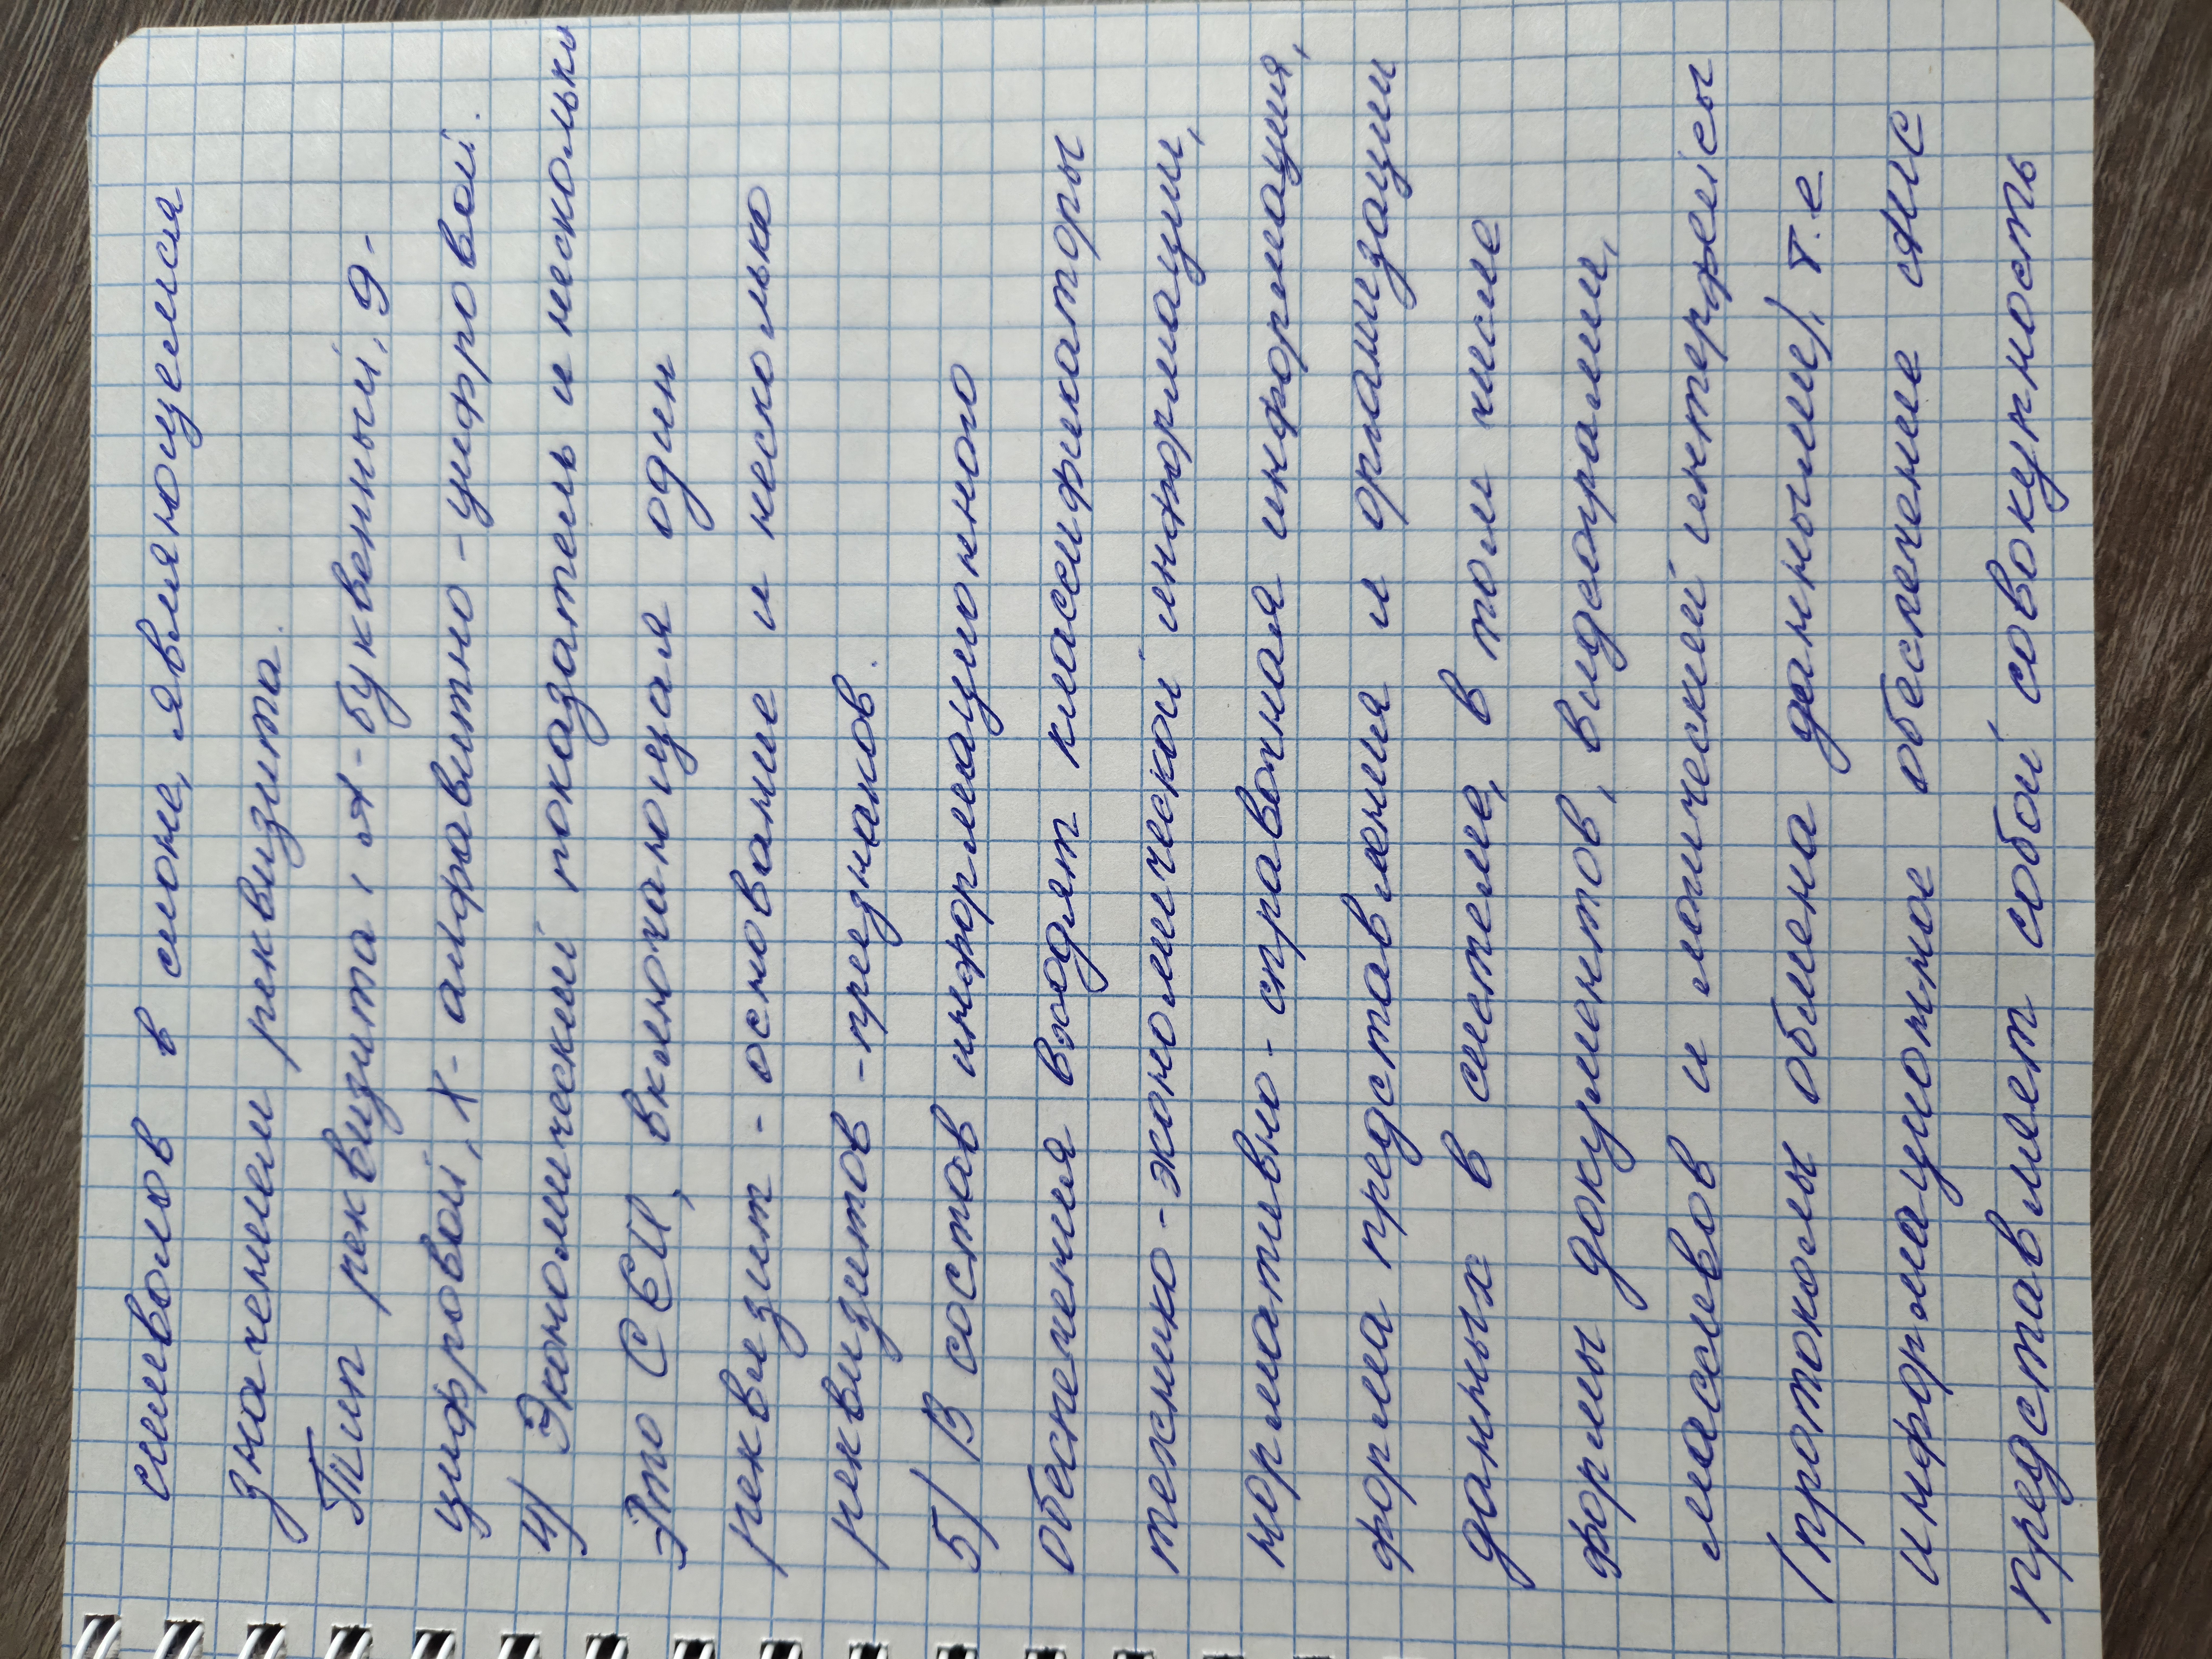 символов в слове, являющемся
значением реквизита.
Тип реквизита: А - буквенный, 9 -
цифровой, X - алфавитно-цифровой.
4) Экономический показатель и несколько
Это СЕИ, включающая один
реквизит - основание и несколько
реквизитов - признаков.
5) В состав информационного
обеспечения входят классификаторы
технико-экономической информации,
нормативно-справочная информация,
форма представления и организации
данных в системе, в том числе
формы документов, видеограмм,
массивов и логический интерфейсы
(протоколы обмена данными), т.е
информационное обеспечение АИС
представляет собой совокупность